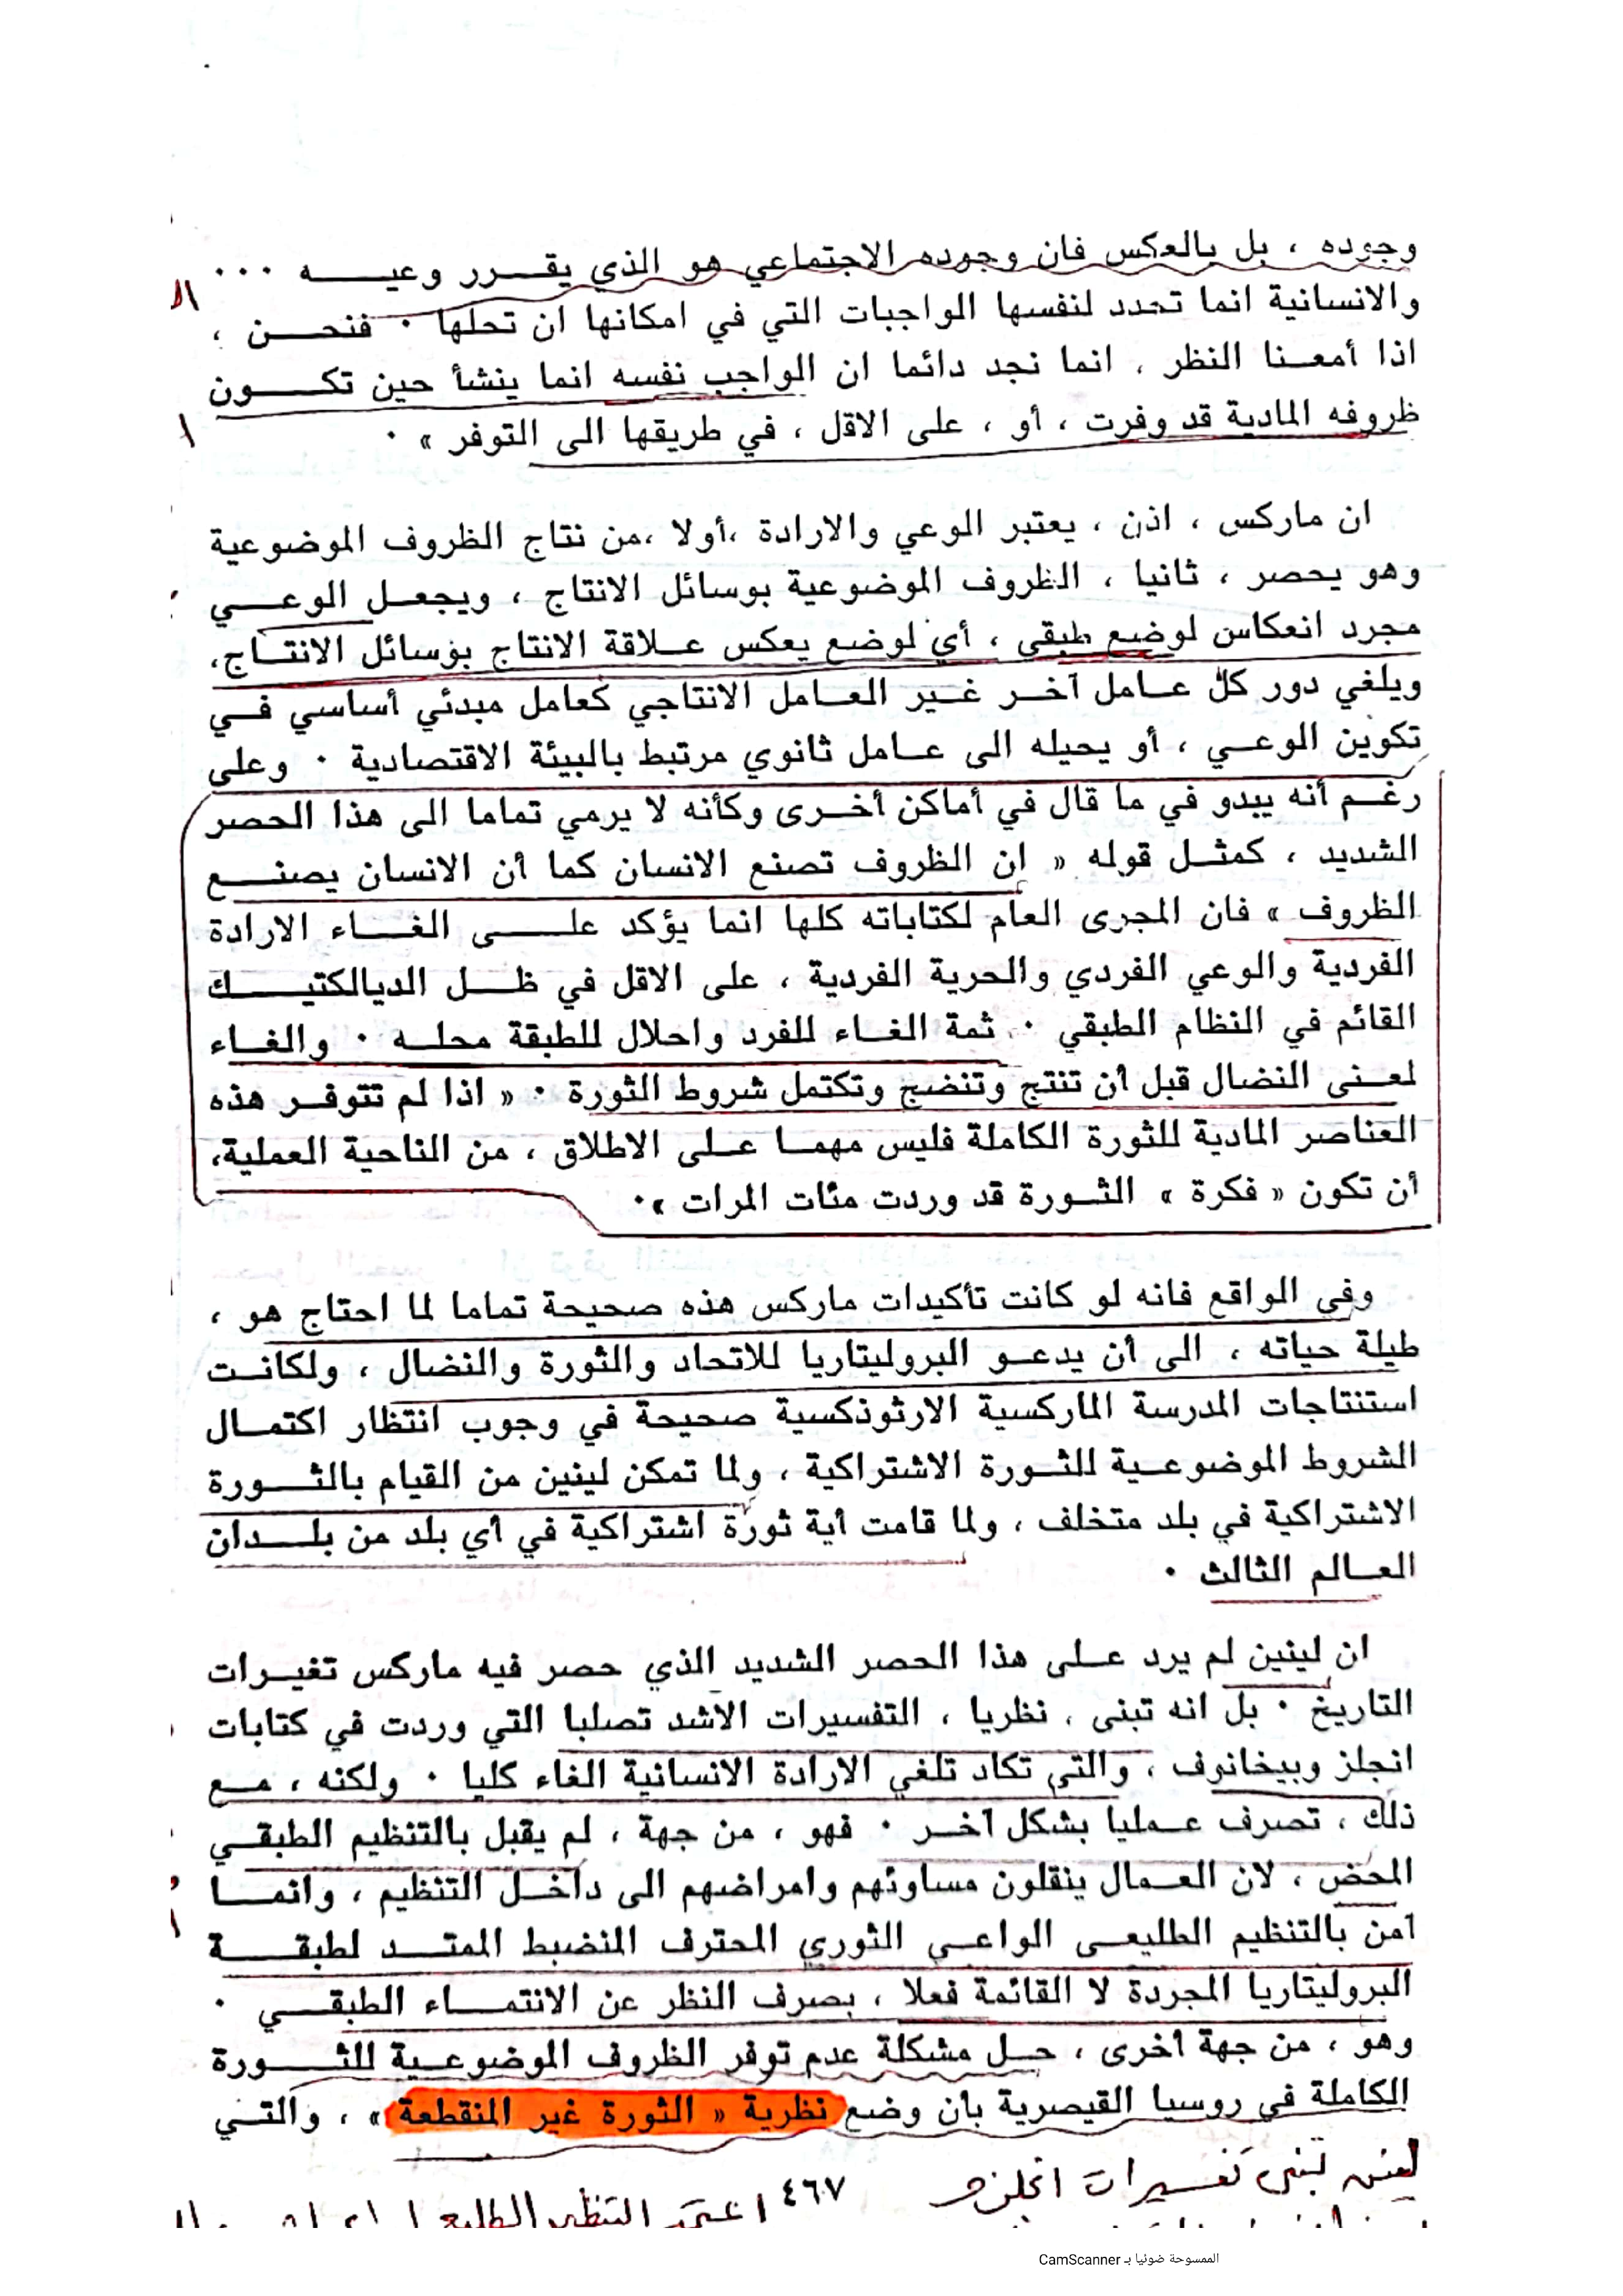 وجوده ، بل بالعكس فان وجوده الاجتماعي هو الذي يقـــرر وعيـــــه ٠٠٠
والانسانية انما تحدد لنفسها الواجبات التي في امكانها ان تحلها ٠ فنحـــن ،
اذا أمعـــنا النظر ، انما نجد دائما ان الواجب نفسه انما ينشأ حين تكــــون
ظروفه المادية قد وفرت ، أو ، على الاقل ، في طريقها الى التوفر » ٠
ان ماركس ، اذن ، يعتبر الوعي والارادة ،أولا ،من نتاج الظروف الموضوعية
وهو يحصر ، ثانيا ، الظروف الموضوعية بوسائل الانتاج ، ويجعـل الوعـــي
مجرد انعكاس لوضع طبقي ، أي لوضع يعكس عـلاقة الانتاج بوسائل الانتــاج،
ويلغي دور كل عـامل آخـر غـير العـامل الانتاجي كعامل مبدئي أساسي فـي
تكوين الوعـي ، أو يحيله الى عـامل ثانوي مرتبط بالبيئة الاقتصادية ٠ وعلى
رغـم أنه يبدو في ما قال في أماكن أخـرى وكأنه لا يرمي تماما الى هذا الحصر
الشديد ، كمثـل قوله « ان الظروف تصنع الانسان كما أن الانسان يصنـــع
الظروف » فان المجرى العام لكتاباته كلها انما يؤكد علـــى الغـــاء الارادة
الفردية والوعي الفردي والحرية الفردية ، على الاقل في ظـــل الديالكتيـــك
القائم في النظام الطبقي ٠ ثمة الغـاء للفرد واحلال للطبقة محلـه ٠ والغـاء
لمعـنى النضال قبل أن تنتج وتنضج وتكتمل شروط الثورة ٠ « اذا لم تتوفـر هذه
العناصر المادية للثورة الكاملة فليس مهمـا عـلى الاطلاق ، من الناحية العملية،
أن تكون « فكرة » الثـورة قد وردت مئات المرات »٠
وفي الواقع فانه لو كانت تأكيدات ماركس هذه صحيحة تماما لما احتاج هو ،
طيلة حياته ، الى أن يدعـو البروليتاريا للاتحاد والثورة والنضال ، ولكانـت
استنتاجات المدرسة الماركسية الارثوذكسية صحيحة في وجوب انتظار اكتمـال
الشروط الموضوعـية للثـورة الاشتراكية ، ولما تمكن لينين من القيام بالثـــورة
الاشتراكية في بلد متخلف ، ولما قامت أية ثورة اشتراكية في أي بلد من بلــدان
العـالم الثالث ٠
ان لينين لم يرد عـلى هذا الحصر الشديد الذي حصر فيه ماركس تغيـرات
التاريخ ٠ بل انه تبنى ، نظريا ، التفسيرات الاشد تصلبا التي وردت في كتابات
انجلز وبيخانوف ، والتي تكاد تلغي الارادة الانسانية الغاء كليا ٠ ولكنه ، مـع
ذلك ، تصرف عـمليا بشكل آخـر ٠ فهو ، من جهة ، لم يقبل بالتنظيم الطبقـي
المحض ، لان العـمال ينقلون مساوئهم وامراضهم الى داخـل التنظيم ، وانمــا
آمن بالتنظيم الطليعـى الواعـي الثوري المحترف المنضبط الممتــد لطبقــــة
البروليتاريا المجردة لا القائمة فعلا ، بصرف النظر عن الانتمــاء الطبقــي ٠
وهو ، من جهة أخرى ، حـل مشكلة عدم توفر الظروف الموضوعـية للثـــورة
الكاملة في روسيا القيصرية بأن وضع نظرية « الثورة غير المنقطعة » ، والتـي
لينين تبنى تفسيرات انجلز و
٤٦٧
الممسوحة ضوئيا بـ CamScanner